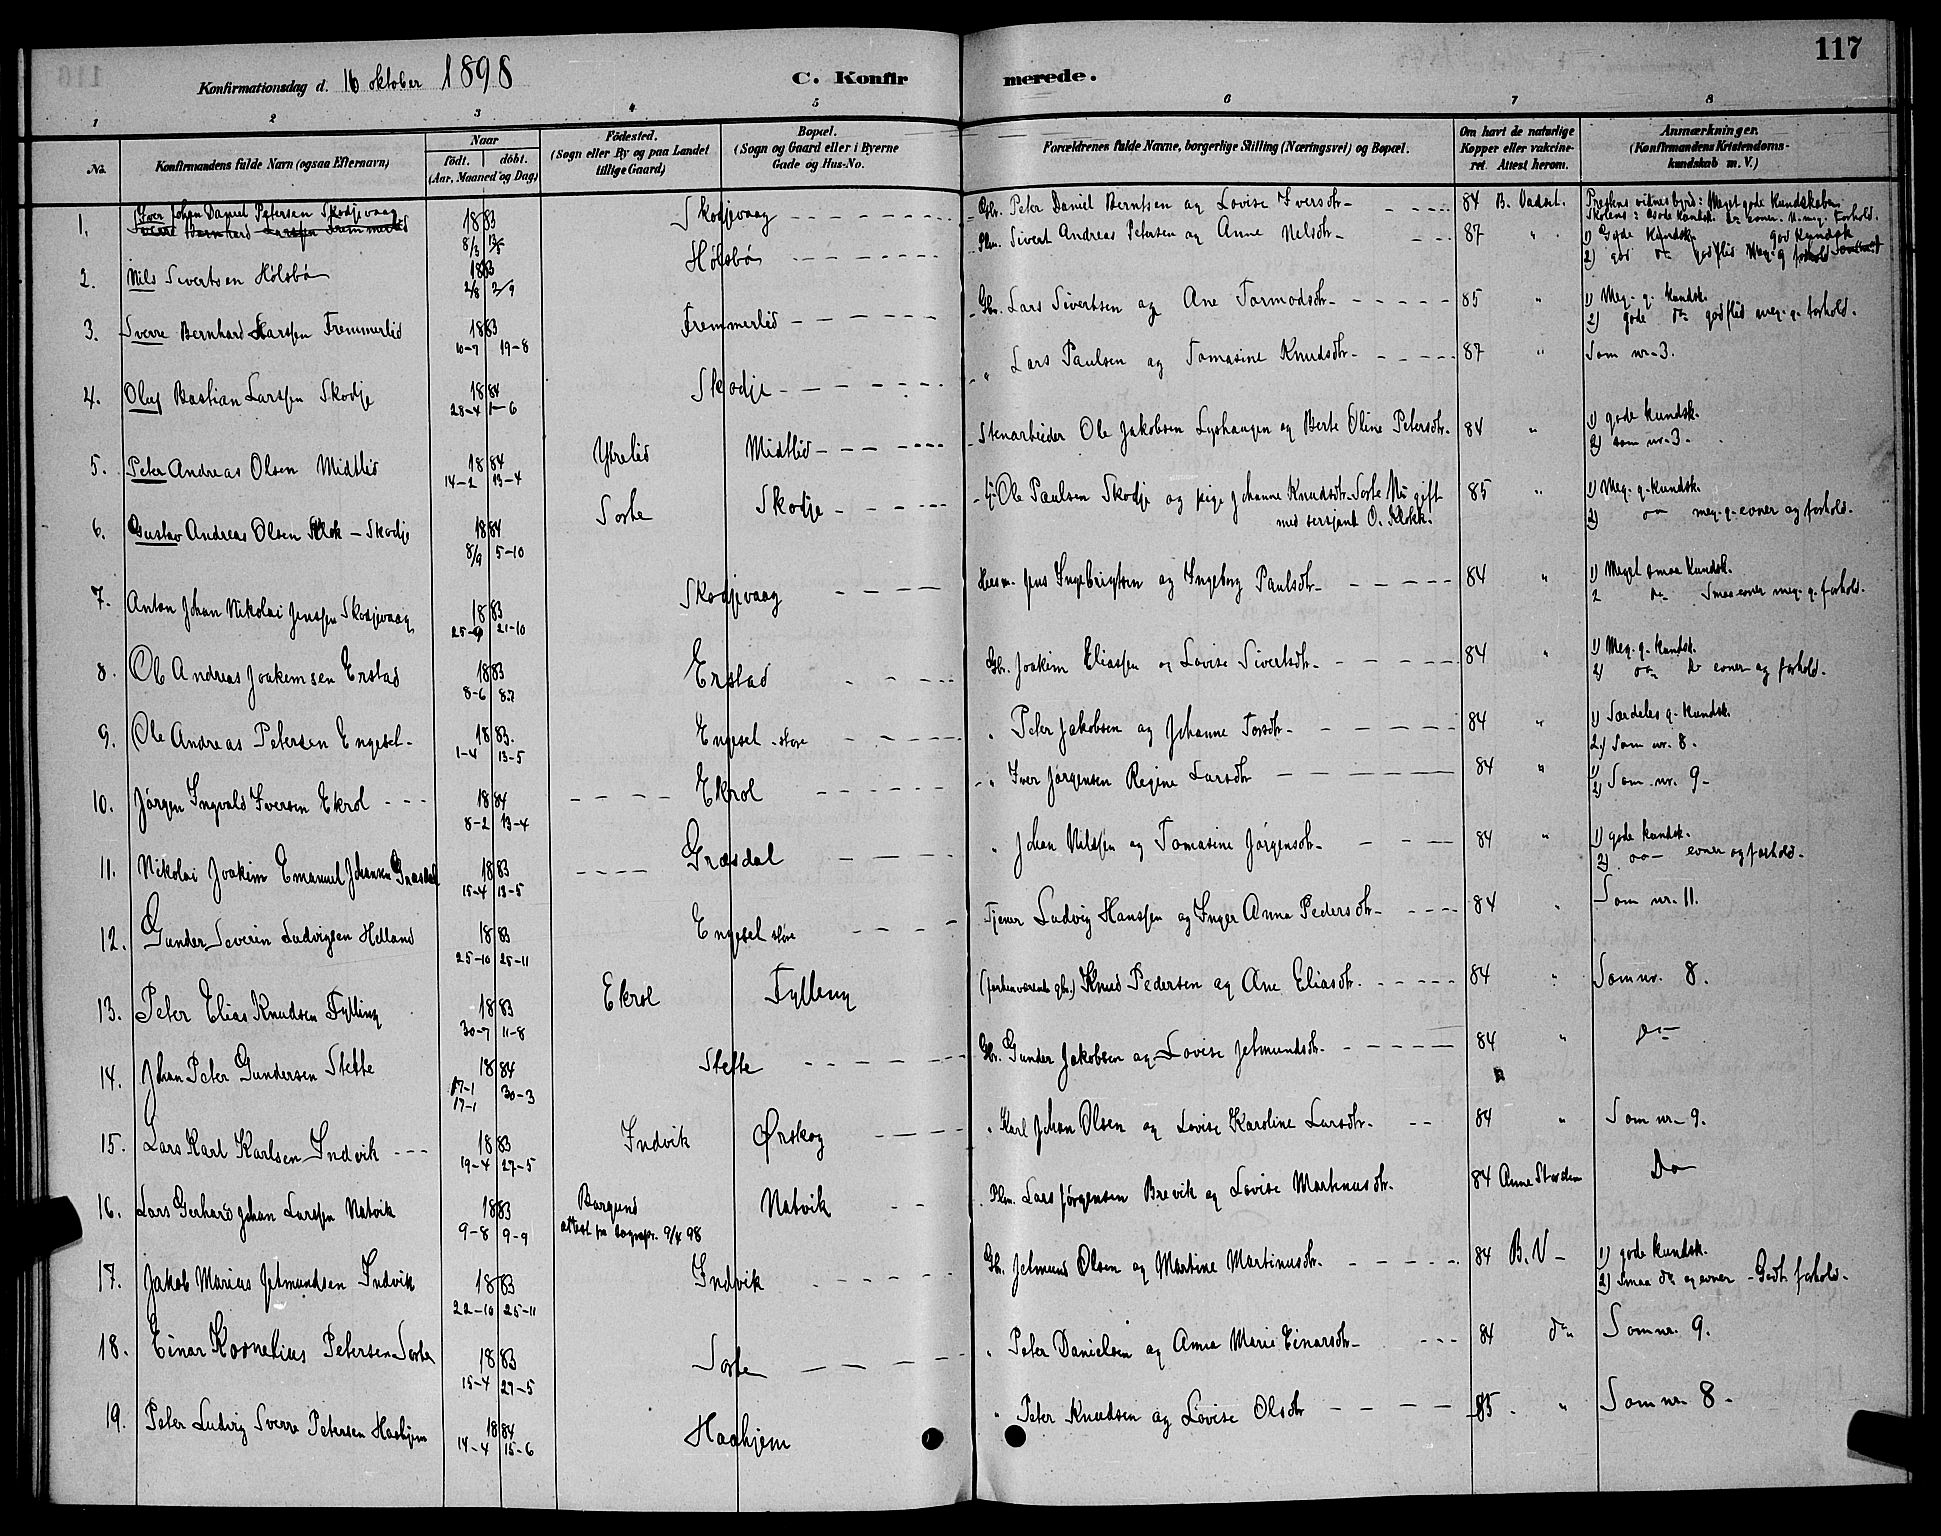 117
Konfirmationsdag d. 16 oktober 1898
C. Konfirmerede.
1 2 3 4 5 6 7 8
No. Konfirmandens fulde Navn (ogsaa Efternavn)
Naar
födt. döbt.
(Aar, Maaned og Dag)
Födested.
(Sogn eller By og paa Landet
tillige Gaard)
Bopæl.
(Sogn og Gaard eller i Byerne
Gade og Hus-No.
Forældrenes fulde Navne, borgerlige Stilling (Næringsvei) og Bopæl.
Om havt de naturlige
Kopper eller vakcine-
ret. Attest herom.
Anmærkninger.
(Konfirmandens Kristendoms-
kundskab m. V.)
1. Iver Johan Daniel Petersen Skodjevaag 1883 8/3 13/5 Skodjevaag Gbr. Peter Daniel Berntsen og Lovise Iversdtr. 84 B. Vadset. Prestens vidnesbyrd: Meget gode Kundskaber
Sverre Bernhard Larssen Fremmerlid
2. Nils Sivertsen Holsbø 1883 2/8 2/9 Holsbø Plm. Sivert Andreas Petersen og Anne Nelsdtr. 87 " 1) Gode Kundsk.
3. Sverre Bernhard Larssen Fremmerlid 1883 10-7 19-8 Fremmerlid Gbr. Lars Sivertsen og Ane Tormodsdtr. 85 " 1) Meg. g. Kundsk.
2) gode do godflid meg. g. forhold.
4. Oluf Bastian Larssen Skodje 1884 28-4 1-6 Skodje " Lars Paulsen og Tomasine Knudsdtr. 87 " Som nr. 3.
5. Peter Andreas Olsen Midtlid 1884 14-2 13-4 Ytrelid Midtlid Stenarbeider Ole Jakobsen Lyshaugen og Berte Oline Petersdtr. 84 " 1) gode kundsk.
2) som nr. 3.
6. Gustav Andreas Olsen Klok - Skodje 1884 8/9 5-10 Sorte Skodje Ole Paulsen Skodje og pige Johanne Knudsdtr. Sorte Nu gift
med sersjant O. Klokk. 85 " 1) Meg. g. Kundsk.
2) do meg. g. evner og forhold.
7. Anton Johan Nikolai Jenssen Skodjevaag 1883 25-9 21-10 Skodjevaag Husm. Jens Ingebrigtsen og Ingeborg Paulsdtr. 84 " 1) Meget smaa Kundsk.
2 do Smaa evner meg. g. forhold.
8. Ole Andreas Joakimsen Erstad 1883 8-6 8-7 Erstad Gbr. Joakim Eliassen og Lovise Sivertsdtr. 84 " 1) Meg. g. Kundsk.
2) do do evner og forhold.
9. Ole Andreas Petersen Engeset 1883. 1-4 13-5 Engeset store " Peter Jakobsen og Johanne Torsdtr. 84 " 1) Særdeles g. Kundsk.
2) Som nr. 8.
10. Jørgen Ingvald Iversen Ekrol 1884 8-2 13-4 Ekrol " Iver Jørgensen Regine Larsdtr. 84 " 1)
2) Som nr. 9
11. Nikolai Joakim Emanuel Johansen Græsdal 1883 15-4 13-5 Græsdal " Johan Nilssen og Tomasine Jørgensdtr. 84 " 1) gode kundsk.
2) do evner og forhold.
12. Gunder Severin Ludvigsen Helland 1883 25-10 25-11 Engeset store Tjener Ludvig Hanssen og Inger Anna Pedersdtr. 84 " Som nr. 11.
13. Peter Elias Knudsen Fylling 1883 30-7 11-8 Ekrol Fylling (forhenværende gbr.) Knud Pedersen og Ane Eliasdtr. 84 " Som nr. 8.
14. Johan Peter Gundersen Stette 1884 17-1 30-3
17-1 Stette Gbr. Gunder Jakobsen og Lovise Jetmundsdtr. 84 " do
15. Lars Karl Karlsen Indvik 1883 19-4 27-5 Indvik Ørskog " Karl Johan Olsen og Lovise Karoline Larsdtr. 84 " Som nr. 9.
16. Lars Gerhard Johan Larssen Natvik 1883 9-8 9-9 Borgund
attest fra sognepr. 9/4 98 Natvik Plm. Lars Jørgensen Brevik og Lovise Martinusdtr. 84 Anne Stavdem Do
17. Jakob Marius Jetmundsen Indvik 1883 22-10 25-11 Indvik Gb. Jetmund Olsen og Martine Martinusdtr. 84 B. V 1) gode kundsk.
2) smaa do og evner Godt forhold.
18. Einar Kornelius Petersen Sorte 1883 15-4 27-5 Sorte " Peter Danielsen og Anna Marie Einarsdtr. 84 do Som nr. 9.
19. Peter Ludvig Sverre Petersen Haahjem 1884 14-4 15-6 Haahjem " Peter Knudsen og Lovise Olsdtr 85 " Som nr. 8